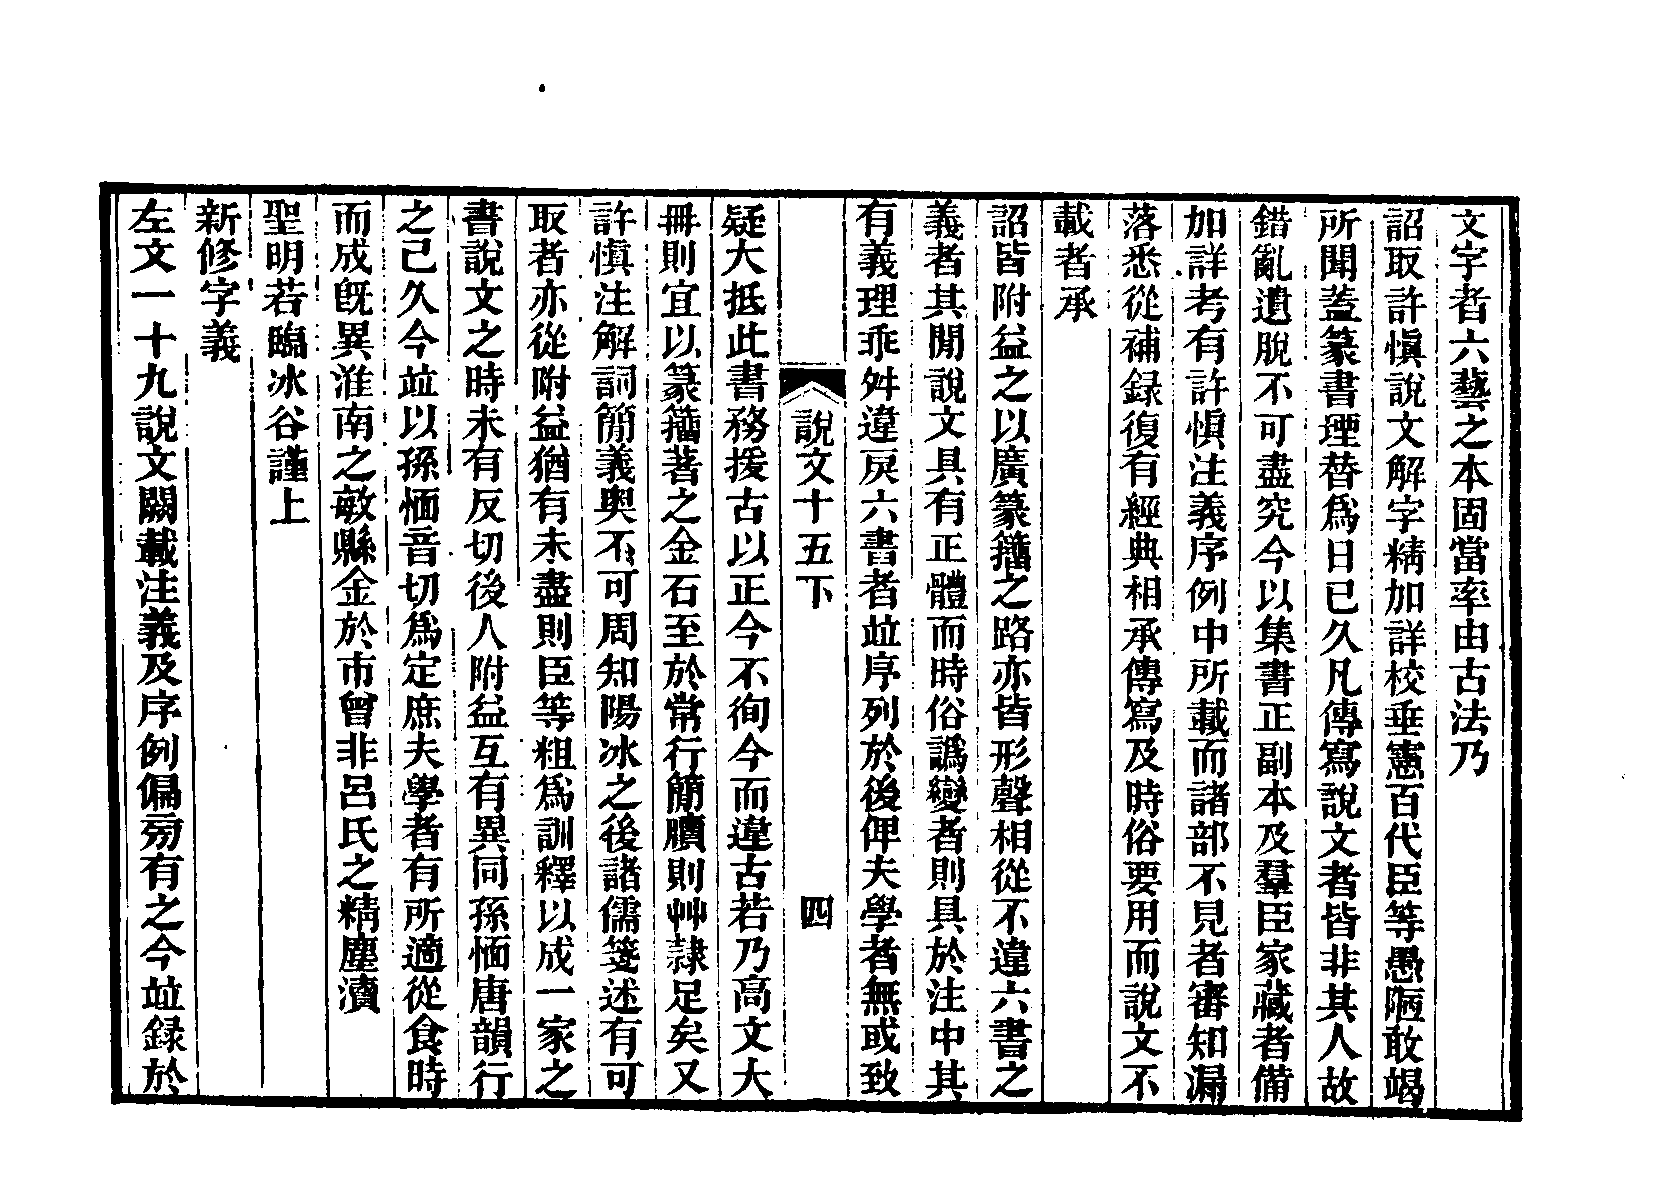 文字者六藝之本固當率由古法乃
詔取許愼說文解字精加詳校垂憲百代臣等愚陋敢竭
所聞蓋篆書堙替爲日已久凡傳寫說文者皆非其人故
錯亂遺脫不可盡究今以集書正副本及羣臣家藏者備
加詳考有許愼注義序例中所載而諸部不見者審知漏
落悉從補録復有經典相承傳寫及時俗要用而說文不
載者承
詔皆附益之以廣篆籒之路亦皆形聲相從不違六書之
義者其閒說文具有正體而時俗譌變者則具於注中其
有義理乖舛違戾六書者竝序列於後俾夫學者無或致
說文十五下
四
疑大抵此書務援古以正今不徇今而違古若乃高文大
冊則宜以篆籒著之金石至於常行簡牘則艸隷足矣又
許愼注解詞簡義奥不可周知陽冰之後諸儒箋述有可
取者亦從附益猶有未盡則臣等粗爲訓釋以成一家之
書說文之時未有反切後人附益互有異同孫愐唐韻行
之已久今竝以孫愐音切爲定庶夫學者有所適從食時
而成旣異淮南之敏縣金於市曾非呂氏之精塵瀆
聖明若臨冰谷謹上
新修字義
左文一十九說文闕載注義及序例偏旁有之今竝録於